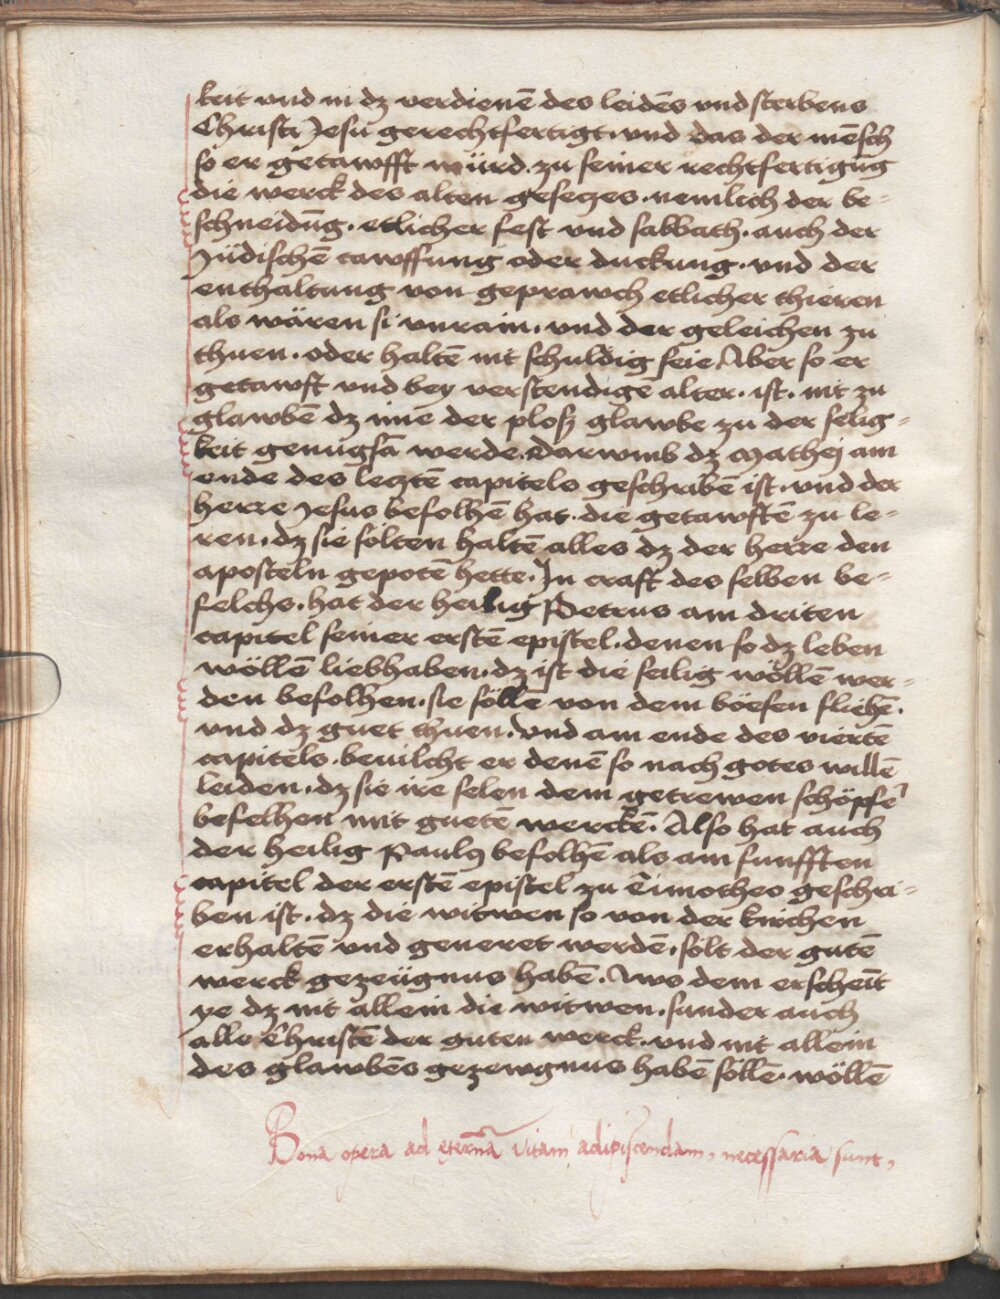 keit vnd in dz verdienē des leidēs vnd sterbens
Christi Jesu gerechtfertigt. vnd das der mēsch
so er getawfft würd. zu seiner rechtfertigūg
die werck des alten gesetzes. nemlich der be-
schneidūg. etlicher fest vnd sabbath. auch der
Jüdischē tawffung oder duckung. vnd der
enthaltung von geprawch etlicher thieren
als wären si vnrain. vnd der geleichen zu
thuen. oder haltē nit schuldig seie. Aber so er
getawft vnd bey verstendigē alter. ist. nit zu
glawbē dz imē der ploß glawbe zu der selig-
keit genugsā werde. Darwmb dz Mathej am
ende des letzten capitels geschribē ist. vnd der
herre Jesus befolhē hat. die getawftē zu le-
ren. dz sie solten haltē alles dz der herre den
aposteln gepotē hette. In craft des selben be-
felchs. hat der heilig Petrus am driten
capitel seiner erstē epistel. denen so dz leben
wöllē liebhaben. dz ist die seilig wöllē wer-
den befolhen. sie sölle von dem böesen fliehē.
vnd dz guet thuen. vnd am ende des viertē
capitels. beuilcht er denē so nach gotes willē
leiden. dz sie ire selen dem getrewen schöpfe'
befelhen mit guetē werckē. Also hat auch
der heilig Paulꝰ befolhē als am funfften
capitel der erstē epistel zu Timotheo geschri-
ben ist. dz die witwen so von der kirchen
erhaltē vnd generet werdē. solt der gutē
werck gezeügnus habē. Awß dem erscheīt
ye dz nit allein die witwen. sunder auch
alle Christē der guten werck. vnd nit allein
des glawbēs gezewgnus habē söllē. wöllē
Bona opera ad eternā vitam adipiscendam, necessaria sunt,